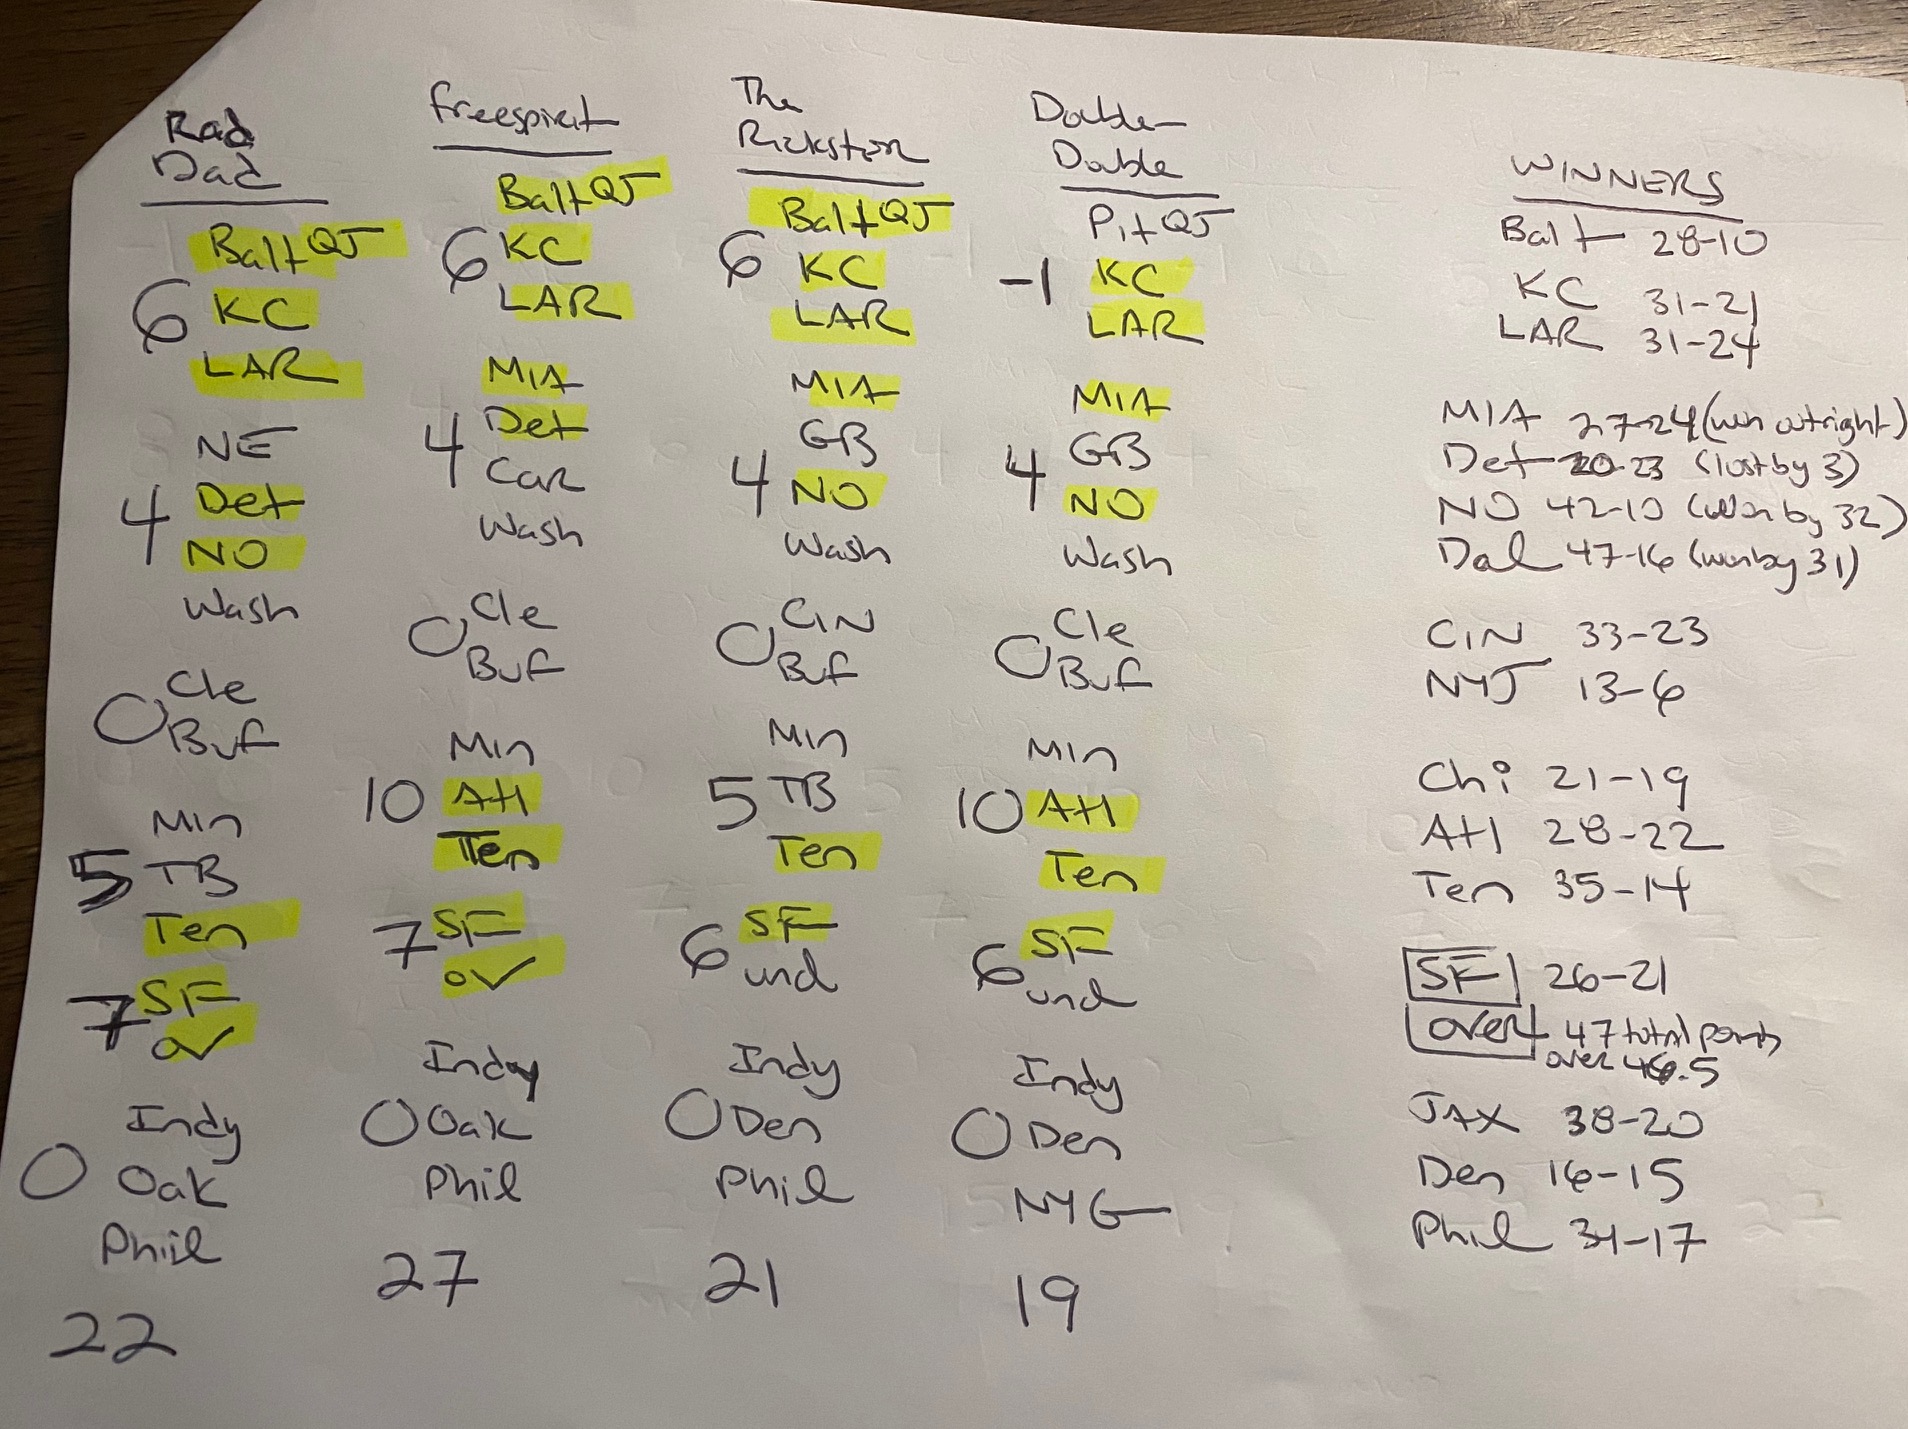 Rad
Dad
Balt QJ
6
KC
LAR
NE
4
Det
NO
Wash
Cle
0
Buf
Min
5
TB
Ten
7
SF
ov
Indy
0
Oak
Phil
22
freespirit
Balt QJ
6
KC
LAR
MIA
4
Det
Car
Wash
Cle
0
Buf
Min
10
Atl
Ten
7
SF
ov
Indy
0
Oak
Phil
27
The
Rickster
Balt QJ
6
KC
LAR
MIA
GB
4
NO
Wash
CIN
0
Buf
Min
5
TB
Ten
6
SF
und
Indy
0
Den
Phil
21
Double-
Double
Pit QJ
-1
KC
LAR
MIA
GB
4
NO
Wash
Cle
0
Buf
Min
10
Atl
Ten
6
SF
und
Indy
0
Den
NYG
19
WINNERS
Balt 28-10
KC 31-21
LAR 31-24
MIA 27-24 (win outright)
Det 20-23 (lost by 3)
NO 42-10 (won by 32)
Dal 47-16 (won by 31)
CIN 33-23
NYJ 13-6
Chi 21-19
Atl 28-22
Ten 35-14
SF 26-21
over 47 total points
over 46.5
JAX 38-20
Den 16-15
Phil 34-17